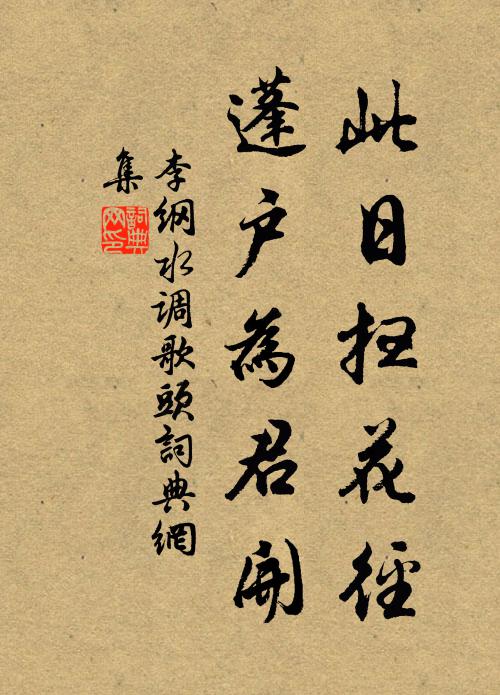 此日扫花徑
蓬户為君開
李纲水调歌頭詞典網
集
詞典網印